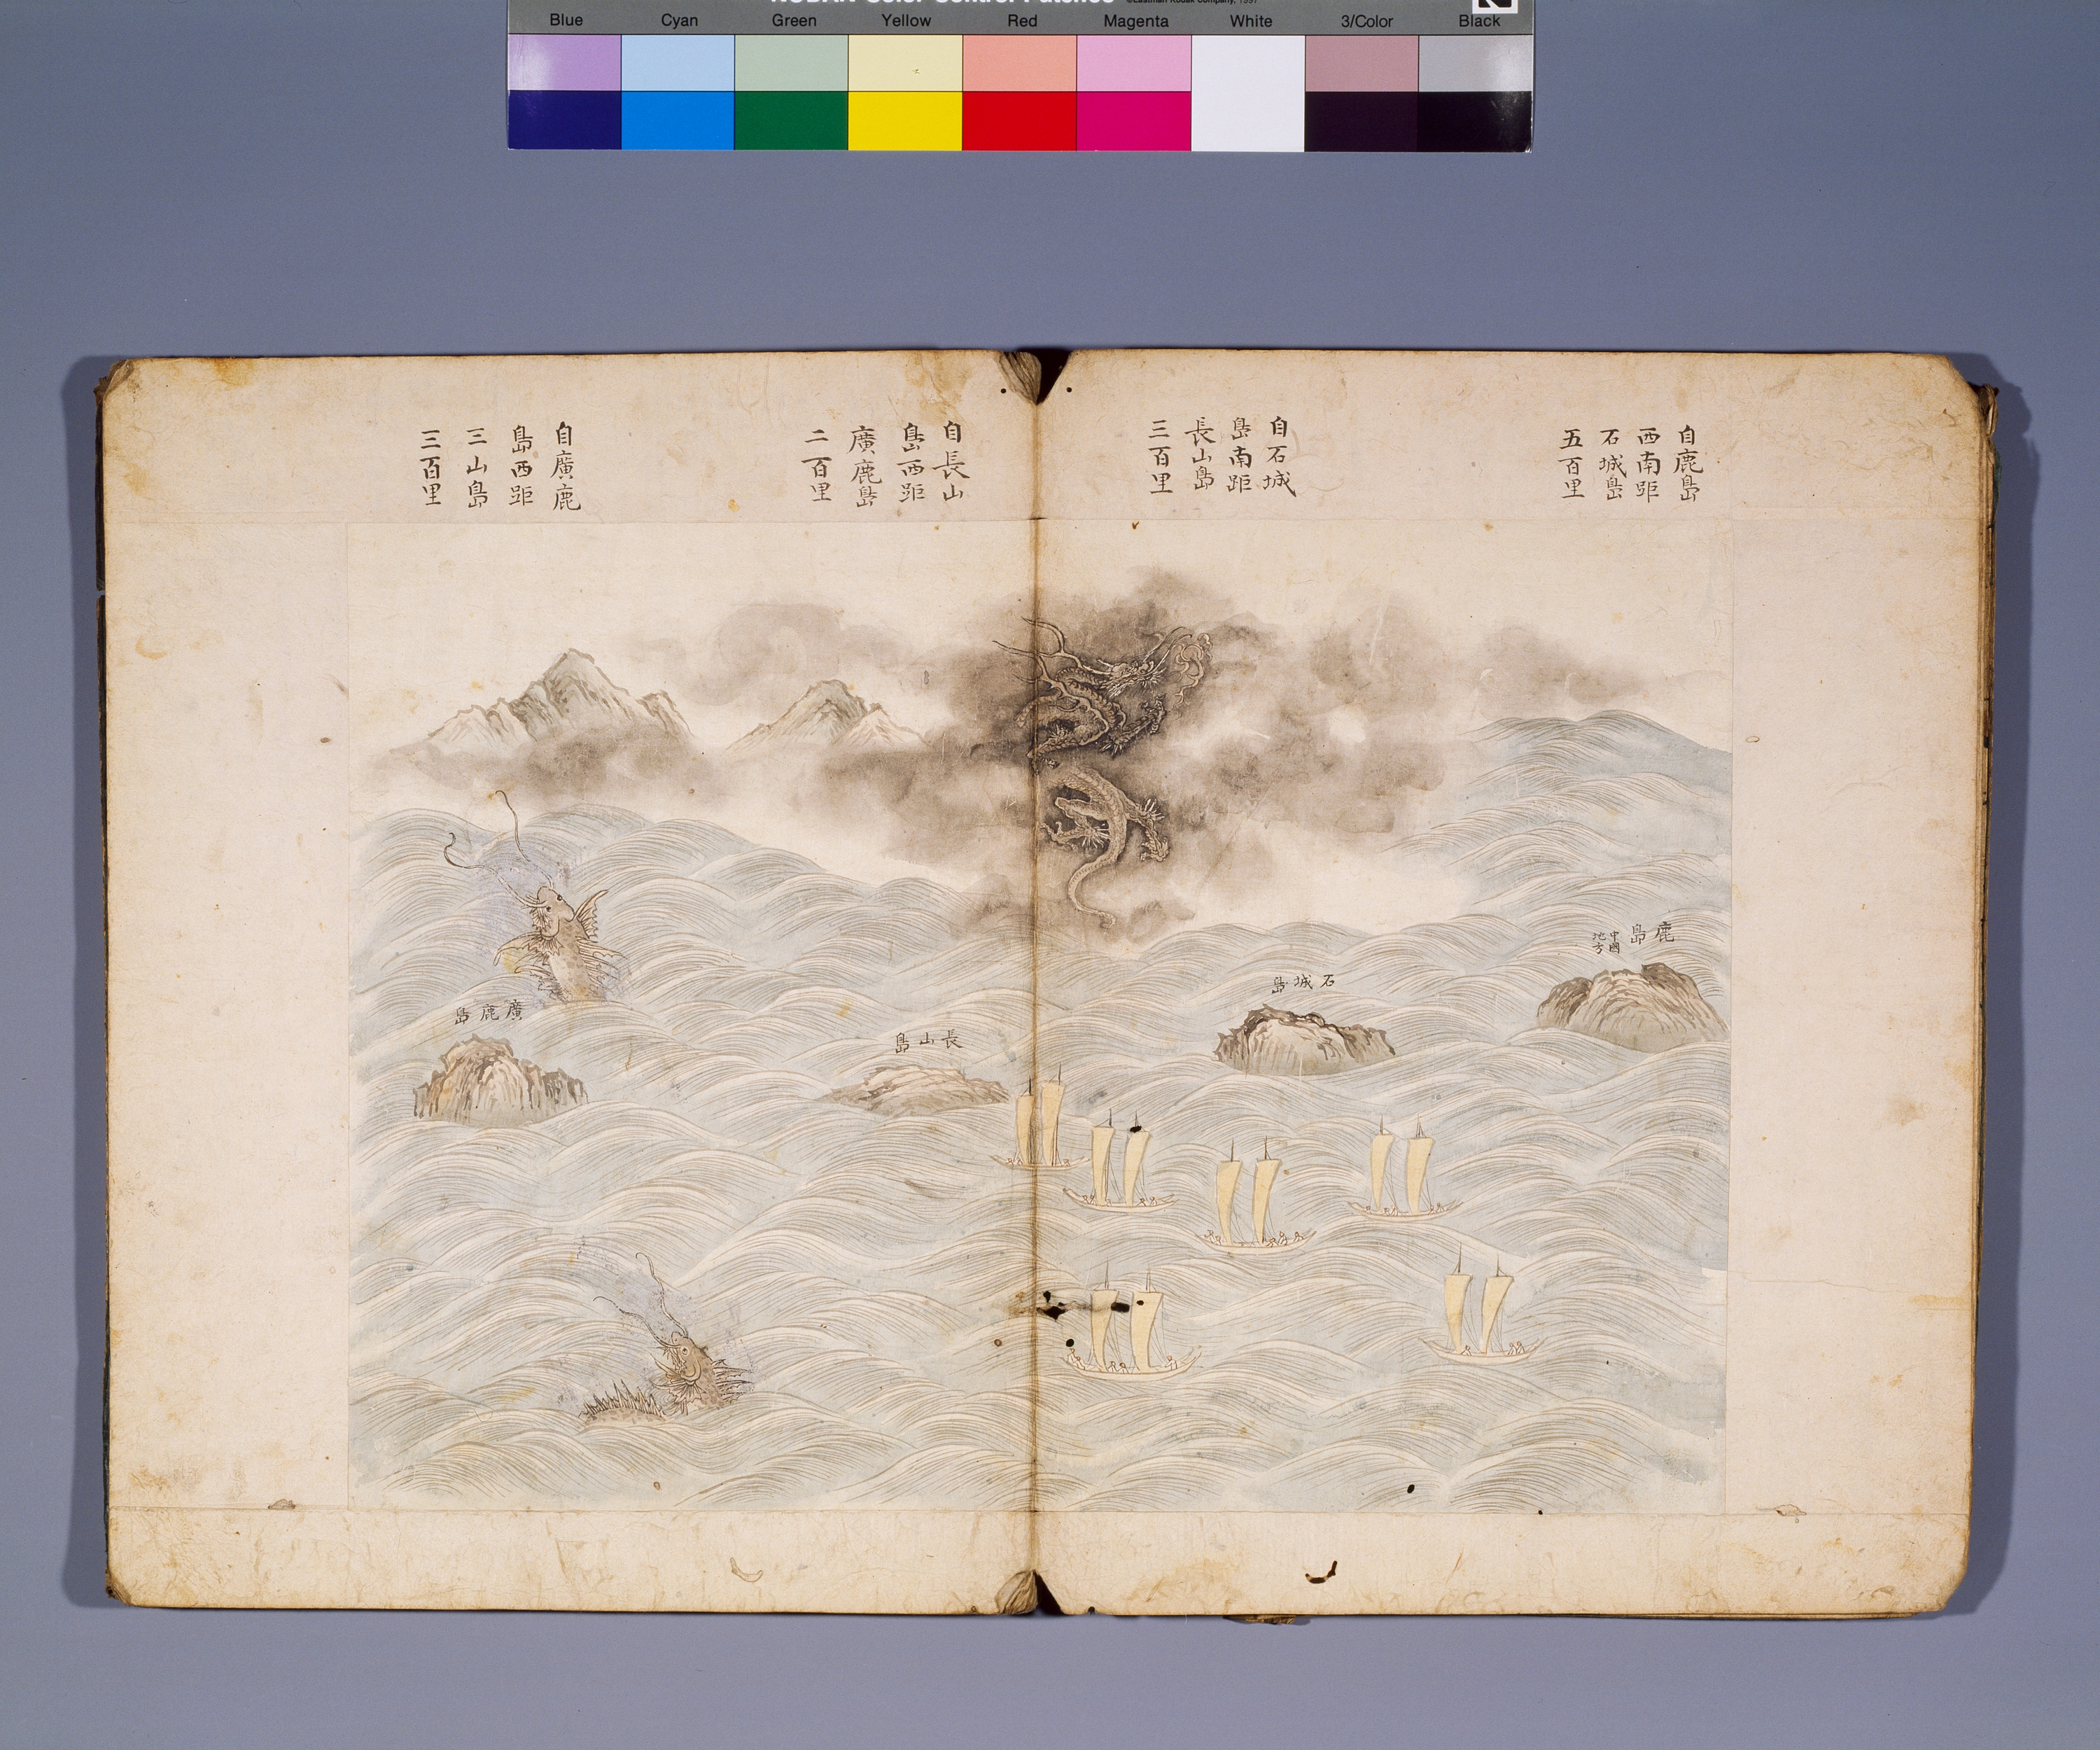 KODAK Color Control Patches ©Eastman Kodak Company, 1997
Blue Cyan Green Yellow Red Magenta White 3/Color Black
自鹿島
西南距
石城島
五百里
自石城
島南距
長山島
三百里
自長山
島西距
廣鹿島
二百里
自廣鹿
島西距
三山島
三百里
鹿島
中國
地方
石城島
長山島
廣鹿島